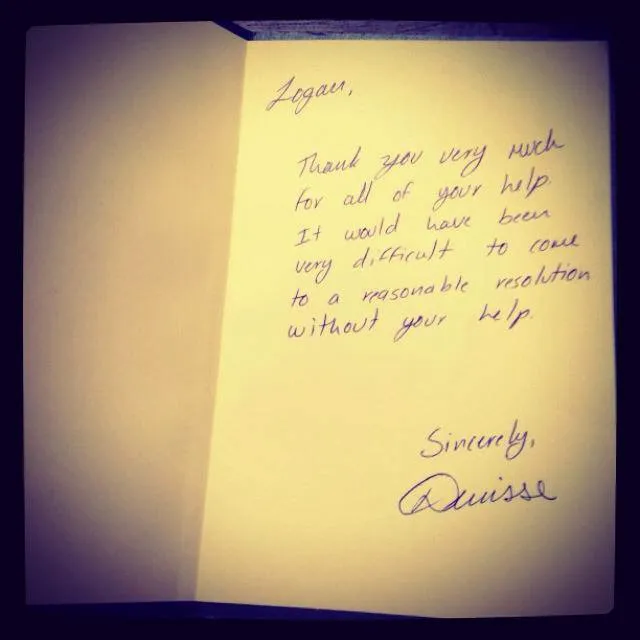 Logan,
Thank you very much
for all of your help.
It would have been
very difficult to come
to a reasonable resolution
without your help.
Sincerely,
Denisse